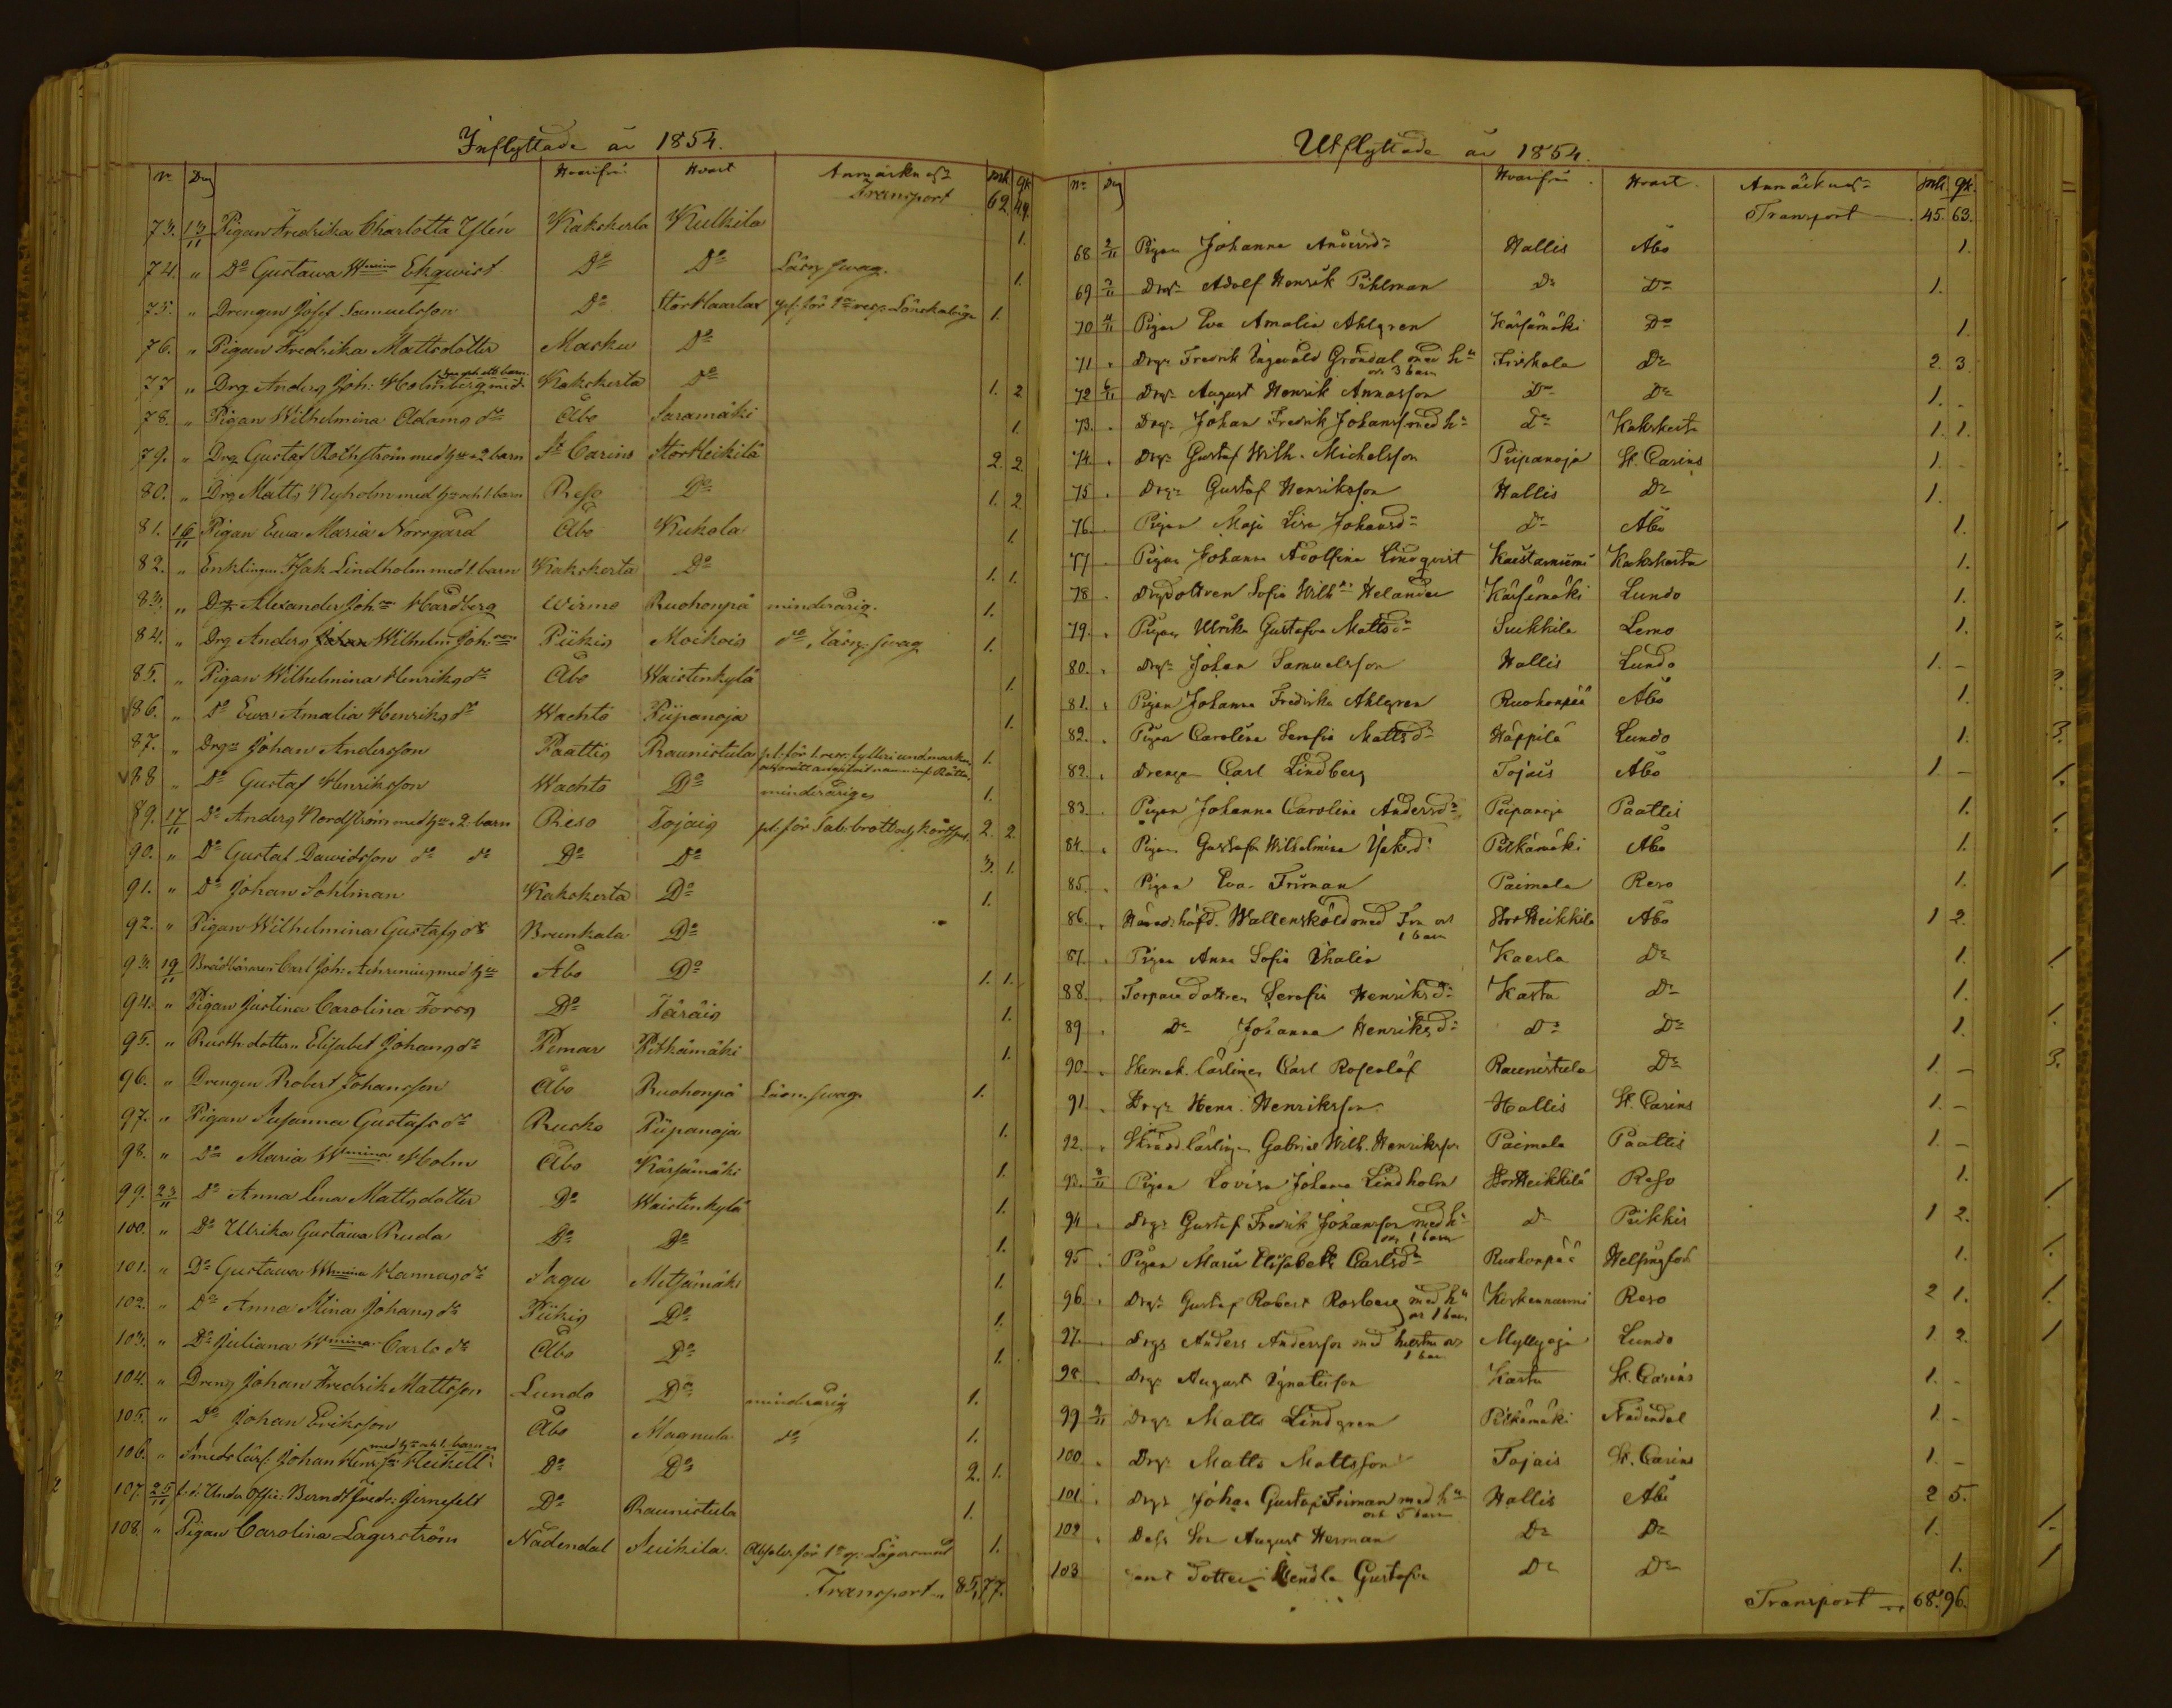 Inflyttade år 1854.
No Dag Hvarifrån Hvart Anmärkngr Mk Qk
Transport 62. 49.
73. 13/11 Pigan Fredrika Charlotta Ylén Kakskerta Kulkila 1.
74. " Do Gustawa Wmina Ekqwist Do Do Läsn. swag. 1.
75. " Drengen Josef Samuelsson Do StorHaarlax pl. för 1sta resp. Lönskaläge 1.
76. " Pigan Fredrika Mattsdotter Masku Do
77 " Drg. Anders Joh: Holmberg med Kakskerta Do 1. 2.
78. " Pigan Wilhelmina Adamsdr Åbo Saramäki 1.
79. " Drg. Gustaf Rothström med hu o 2 barn St Carins StorHeikilä 2. 2.
80. " Drg Matts Nyholm med hu och 1. barn Reso Do 1. 2.
81. 16/11 Pigan Ewa Maria Norrgård Åbo Kukola 1.
82. " Enklingen Isak Lindholm med 1. barn Kakskerta Do 1. 1.
83. " Dr Alexander Johan Hardberg Wirmo Ruohonpä minderårig. 1.
84. " Drg Anders Johan Wilhelm Joh:son Piikis Moikois do, läsn. swag 1.
85. " Pigan Wilhelmina Henriksdr Åbo Waistenkylä 1.
86. " Do Ewa Amalia Henriksdr Wachto Piipanoja 1.
87. " Drgn Johan Andersson Paattis Raunistula 1.
88 " Do Gustaf Henriksson Wachto Do minderåriges 1.
89. 17/11 Do Anders Nordström med hu o 2. barn Reso Tojais pl. för Sab. brott 2. 2.
90. " Do Gustaf Dawidsson do do Do Do 3. 1.
91. " Do Johan Sohlman Kakskerta Do 1.
92. " Pigan Wilhelmina Gustafsdr Brunkala Do
93. 19/11 Carl Joh: med hu Åbo Do 1. 1.
94. " Pigan Justina Carolina Forss Do Käräis 1.
95. " Rusth. dottern Elisabet Johansdr Pemar Pitkämäki 1.
96. " Drengen Robert Johansson Åbo Ruohonpä Läsn. swag. 1.
97. " Pigan Susanna Gustafsdr Rusko Piipanoja 1.
98. " Do Maria Wmina Holm Åbo Kärsämäki 1.
99. 23/11 Do Anna Lena Mattsdotter Do Waistenkylä 1.
100. " Do Ulrika Gustawa Ruda Do Do 1.
101. " Do Gustawa Wmina Hannasdr Sagu Metsämäki 1.
102. " Do Anna Stina Johansdr Piikis Do 1.
103. " Do Juliana Wmina Carlsdr Åbo Do 1.
104. " Dreng Johan Fredrik Mattsson Lundo Do minderårig 1.
105. " Do Johan Eriksson Åbo Magnula do 1.
med hu och 1. barn
106. " Smedslärl: Johan Henr: Heikell Do Do 2. 1.
107. 25/11 f.d. Under Offic: Berndt Fredr: Jernefelt Do Raunistula 1.
108. " Pigan Carolina Lagerström Nådendal Suikila. Absolv. för 1a g. Lägersmål 1.
Transport 85. 77.
Utflyttade år 1854.
No Dag Hvarifrån Hvart. Anmärkngr Mk. Qk.
Transport 45. 63.
68 2/11 Pigan Johanna Andersdr Hallis Åbo 1.
69 3/11 Drgn Adolf Henrik Pihlman Do Do 1.
70 4/11 Pigan Eva Amalia Ahlgren Kärsämäki Do 1.
71 " Drgn Fredrik Ingewald Gröndal med hu o. 3 barn Friskala Do 2. 3.
72 6/11 Drgn August Henrik Annasson Do Do 1. -
73. " Drgn Johan Fredrik Johanss. med hu Do Kakskerta 1. 1.
74 " Drgn Gustaf Wilh. Michelsson Piipanoja St. Carins 1. -
75 " Drgn Gustaf Henriksson Hallis Do 1.
76. Pigan Maja Lisa Johansdr Do Åbo 1.
77 Pigan Johanna Adolfina Lindqvist Kaistarniemi Kakskerta 1.
78 Drgdottren Sofia Wilhna Helander Kärsämäki Lundo 1.
79. Pigan Ulrika Gustafva Mattsdr Suikkila Lemo 1.
80. Drgn Johan Samuelsson Hallis Lundo 1. -
81. Pigan Johanna Fredrika Ahlgren Ruohonpää Åbo 1.
82. Pigan Carolina Serafia Mattsdr Häppilä Lundo 1.
82. Drengen Carl Lindberg Tojais Åbo 1 -
83. Pigan Johanna Carolina Andersdr Piipanoja Paattis 1.
84. Pigan Gustafa Wilhelmina Isaksdr Pitkämäki Åbo 1.
85. Pigan Eva Friman Paimala Reso 1.
86. Häradshöfd. Wallensköld med Fru och 1 barn StorHeikkilä Åbo 1 2.
87. Pigan Anna Sofia Thalin Kaerla Do 1.
88. Torparedottren Serafia Henriksdr Kasta Do 1.
89 Do Johanna Henriksdr Do Do 1.
90. Skomak. lärlingen Carl Rosenlöf Raunistula Do 1 -
91. Drgn Henr. Henriksson. Hallis St. Carins 1. -
92. Skräddlärlingen Gabriel Wilh. Henriksson Paimala Paattis 1. -
93. Pigan Lovisa Johanna Lindholm StorHeikkilä Reso 1.
94 Drgn Gustaf Fredrik Johansson med hu och 1 barn Do Piikkis 1 2.
95 Pigan Maria Elisabeth Carlsdr Ruohonpää Helsingfors 1.
96. Drgn Gustaf Robert Rosberg med hu o 1 barn Reso 2 1.
97. Drgn Anders Andersson med hustru och 1 barn Myllyoja Lundo 1 2.
98. Drgn August Ignatiison Kasta St. Carins 1. -
99 9/11 Drgn Matts Lindgren Pitkämäki Nådendal 1 -
100. Drgn Matts Mattsson Tojais St. Carins 1. -
101. Drgn Johan Gustaf Friman med hu och 5 barn Hallis Åbo 2 5.
102 Dess Son August Herman Do Do 1.
103 samt Dotter Wendla Gustafva Do Do 1.
Transport 68. 96.